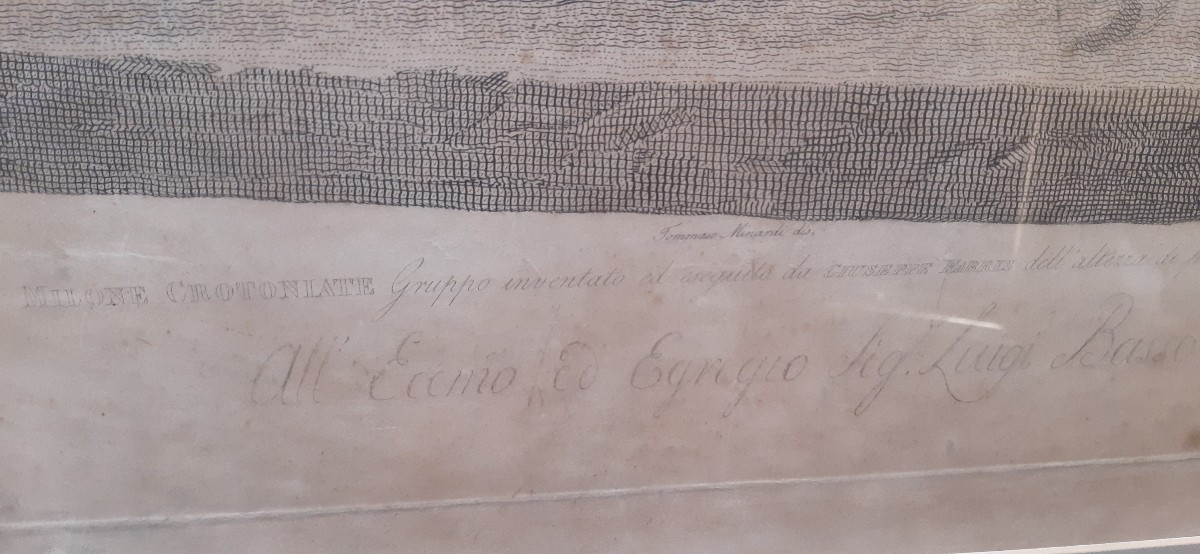 Tommaso Minardi dis.
MILONE CROTONIATE Gruppo inventato ed eseguito da GIUSEPPE FABRIS dell'altezza di
All' Eccmo ed Egregio Sig. Luigi Basso